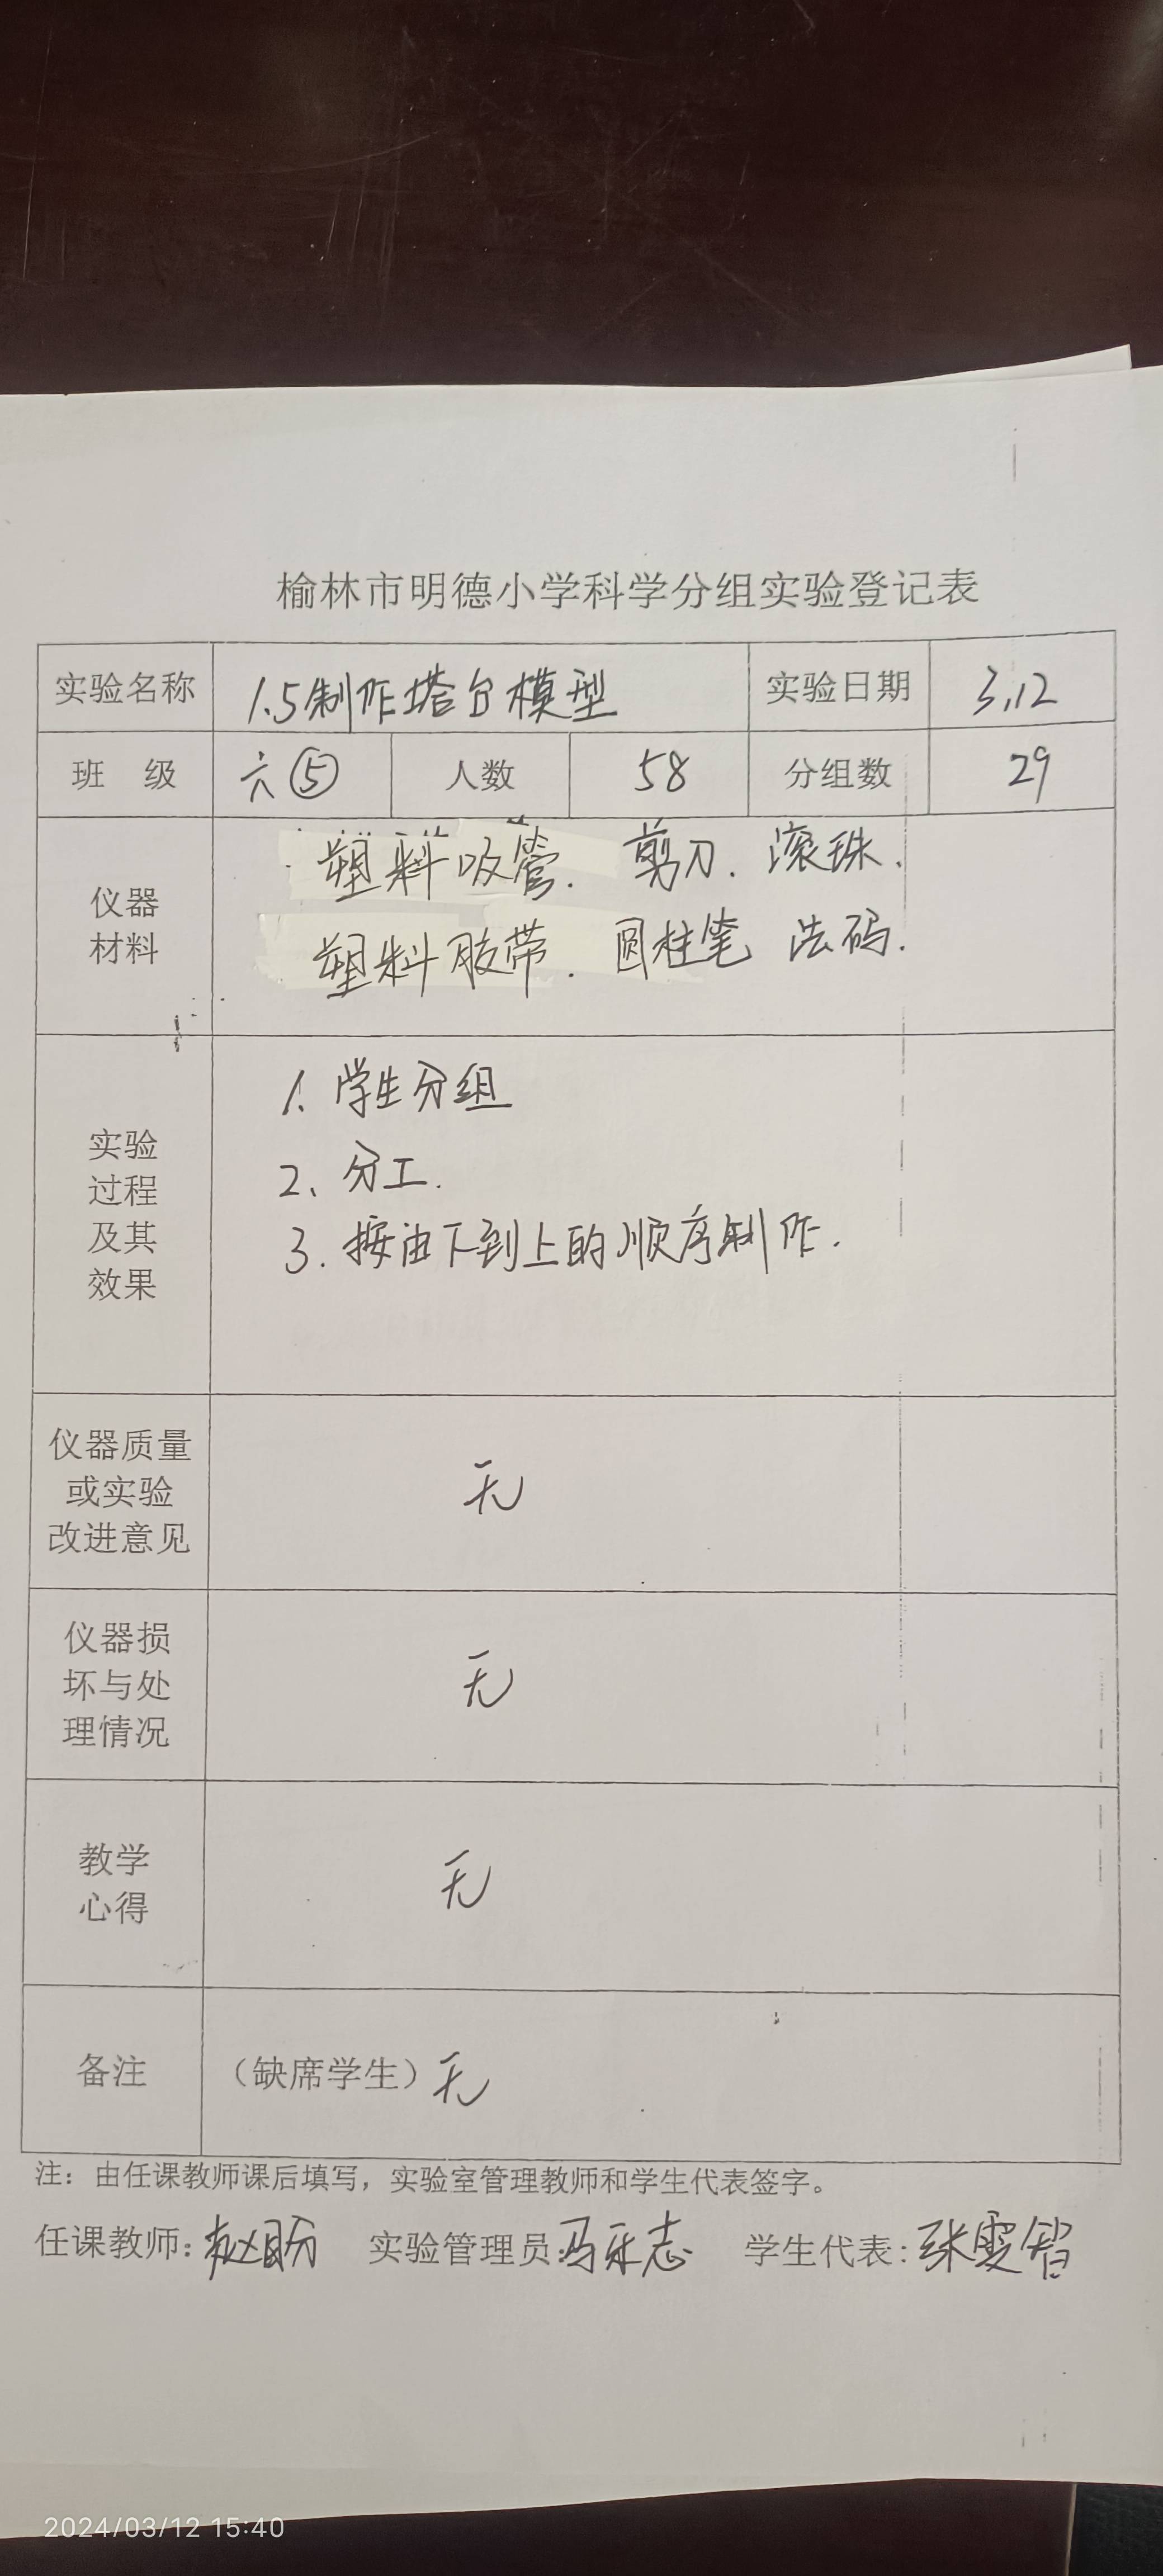 榆林市明德小学科学分组实验登记表
实验名称 1.5制作塔台模型 实验日期 3.12
班 级 六⑤ 人数 58 分组数 29
仪器
材料
塑料吸管. 剪刀. 滚珠.
塑料胶带. 圆柱笔 法码.
实验
过程
及其
效果
1. 学生分组
2、分工.
3. 按由下到上的顺序制作.
仪器质量
或实验
改进意见
无
仪器损
坏与处
理情况
无
教学
心得
无
备注 （缺席学生）无
注：由任课教师课后填写，实验室管理教师和学生代表签字。
任课教师: 实验管理员: 学生代表: 张雯智
2024/03/12 15:40